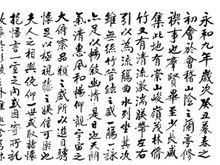 永和九年歲次癸丑暮春之
初會於會稽山陰之蘭亭修
禊事也羣賢畢至少長咸
集此地有崇山峻嶺茂林修
竹又有清流激湍映帶左右
引以為流觴曲水列坐其次
雖無絲竹管弦之盛一觴一詠
亦足以暢敘幽情是日也天朗
氣清惠風和暢仰觀宇宙之
大俯察品類之盛所以遊目騁
懷足以極視聽之娛信可樂也
夫人之相與俯仰一世或取諸懷
抱悟言一室之內因寄所